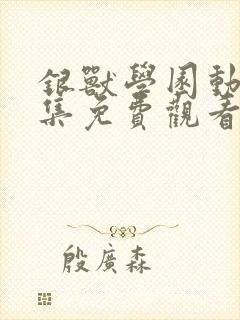 銀獸學園動
集免費觀看
殷廣森